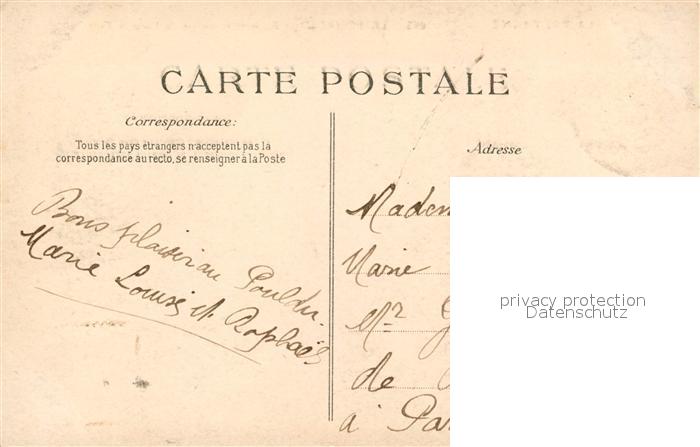 CARTE POSTALE
Correspondance:
Tous les pays étrangers n'acceptent pas la
correspondance au recto, se renseigner à la Poste
Adresse
Bons plaisir au Pouldu
Marie Louise et Raphaël
Madem
Marie
Mr
de
à Par
privacy protection
Datenschutz